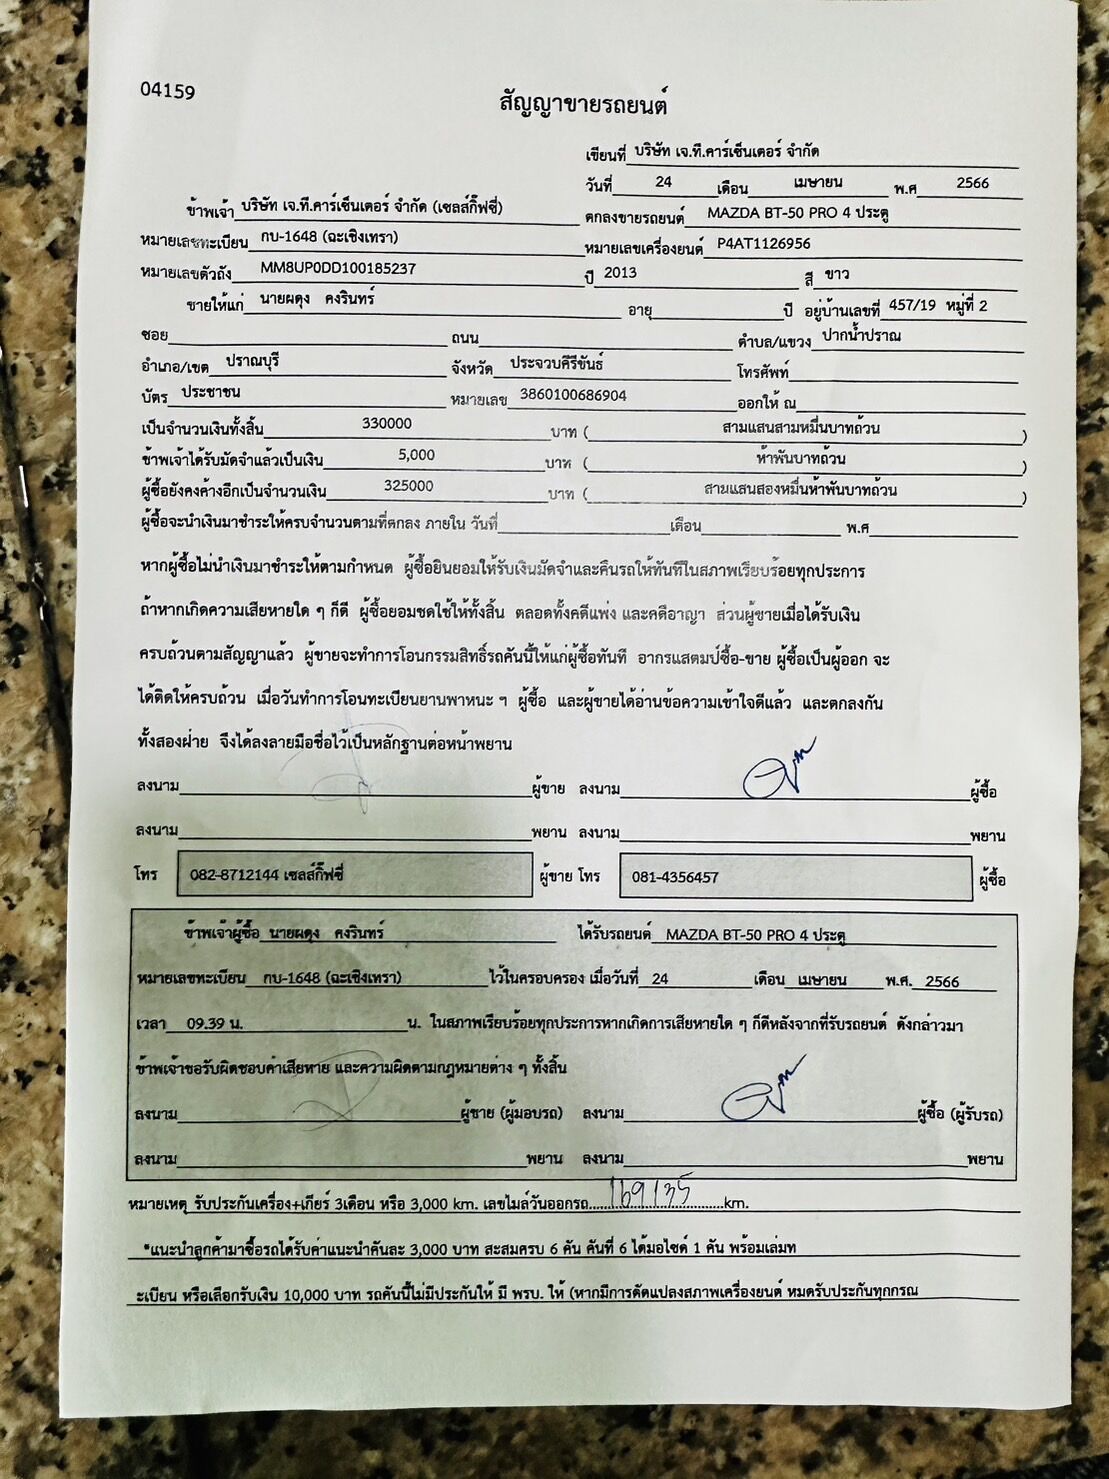 04159
สัญญาขายรถยนต์
เขียนที่ บริษัท เจ.ที.คาร์เซ็นเตอร์ จำกัด
วันที่ 24 เดือน เมษายน พ.ศ 2566
ข้าพเจ้า บริษัท เจ.ที.คาร์เซ็นเตอร์ จำกัด (เซลส์กิ๊ฟซี่) ตกลงขายรถยนต์ MAZDA BT-50 PRO 4 ประตู
หมายเลขทะเบียน กบ-1648 (ฉะเชิงเทรา) หมายเลขเครื่องยนต์ P4AT1126956
หมายเลขตัวถัง MM8UP0DD100185237 ปี 2013 สี ขาว
ขายให้แก่ นายผดุง คงรินทร์ อายุ ปี อยู่บ้านเลขที่ 457/19 หมู่ที่ 2
ซอย ถนน ตำบล/แขวง ปากน้ำปราณ
อำเภอ/เขต ปราณบุรี จังหวัด ประจวบคีรีขันธ์ โทรศัพท์
บัตร ประชาชน หมายเลข 3860100686904 ออกให้ ณ
เป็นจำนวนเงินทั้งสิ้น 330000 บาท ( สามแสนสามหมื่นบาทถ้วน )
ข้าพเจ้าได้รับมัดจำแล้วเป็นเงิน 5,000 บาท ( ห้าพันบาทถ้วน )
ผู้ซื้อยังคงค้างอีกเป็นจำนวนเงิน 325000 บาท ( สามแสนสองหมื่นห้าพันบาทถ้วน )
ผู้ซื้อจะนำเงินมาชำระให้ครบจำนวนตามที่ตกลง ภายใน วันที่ เดือน พ.ศ
หากผู้ซื้อไม่นำเงินมาชำระให้ตามกำหนด ผู้ซื้อยินยอมให้รับเงินมัดจำและคืนรถให้ทันทีในสภาพเรียบร้อยทุกประการ
ถ้าหากเกิดความเสียหายใด ๆ ก็ดี ผู้ซื้อยอมชดใช้ให้ทั้งสิ้น ตลอดทั้งคดีแพ่ง และคดีอาญา ส่วนผู้ขายเมื่อได้รับเงิน
ครบถ้วนตามสัญญาแล้ว ผู้ขายจะทำการโอนกรรมสิทธิ์รถคันนี้ให้แก่ผู้ซื้อทันที อากรแสตมป์ซื้อ-ขาย ผู้ซื้อเป็นผู้ออก จะ
ได้ติดให้ครบถ้วน เมื่อวันทำการโอนทะเบียนยานพาหนะ ฯ ผู้ซื้อ และผู้ขายได้อ่านข้อความเข้าใจดีแล้ว และตกลงกัน
ทั้งสองฝ่าย จึงได้ลงลายมือชื่อไว้เป็นหลักฐานต่อหน้าพยาน
ลงนาม ผู้ขาย ลงนาม ผู้ซื้อ
ลงนาม พยาน ลงนาม พยาน
โทร 082-8712144 เซลส์กิ๊ฟซี่ ผู้ขาย โทร 081-4356457 ผู้ซื้อ
ข้าพเจ้าผู้ซื้อ นายผดุง คงรินทร์ ได้รับรถยนต์ MAZDA BT-50 PRO 4 ประตู
หมายเลขทะเบียน กบ-1648 (ฉะเชิงเทรา) ไว้ในครอบครอง เมื่อวันที่ 24 เดือน เมษายน พ.ศ. 2566
เวลา 09.39 น. น. ในสภาพเรียบร้อยทุกประการหากเกิดการเสียหายใด ๆ ก็ดีหลังจากที่รับรถยนต์ ดังกล่าวมา
ข้าพเจ้าขอรับผิดชอบค่าเสียหาย และความผิดตามกฎหมายต่าง ๆ ทั้งสิ้น
ลงนาม ผู้ขาย (ผู้มอบรถ) ลงนาม ผู้ซื้อ (ผู้รับรถ)
ลงนาม พยาน ลงนาม พยาน
หมายเหตุ รับประกันเครื่อง+เกียร์ 3เดือน หรือ 3,000 km. เลขไมล์วันออกรถ 169135 km.
*แนะนำลูกค้ามาซื้อรถได้รับค่าแนะนำคันละ 3,000 บาท สะสมครบ 6 คัน คันที่ 6 ได้มอไซด์ 1 คัน พร้อมเล่มท
ะเบียน หรือเลือกรับเงิน 10,000 บาท รถคันนี้ไม่มีประกันให้ มี พรบ. ให้ (หากมีการดัดแปลงสภาพเครื่องยนต์ หมดรับประกันทุกกรณ